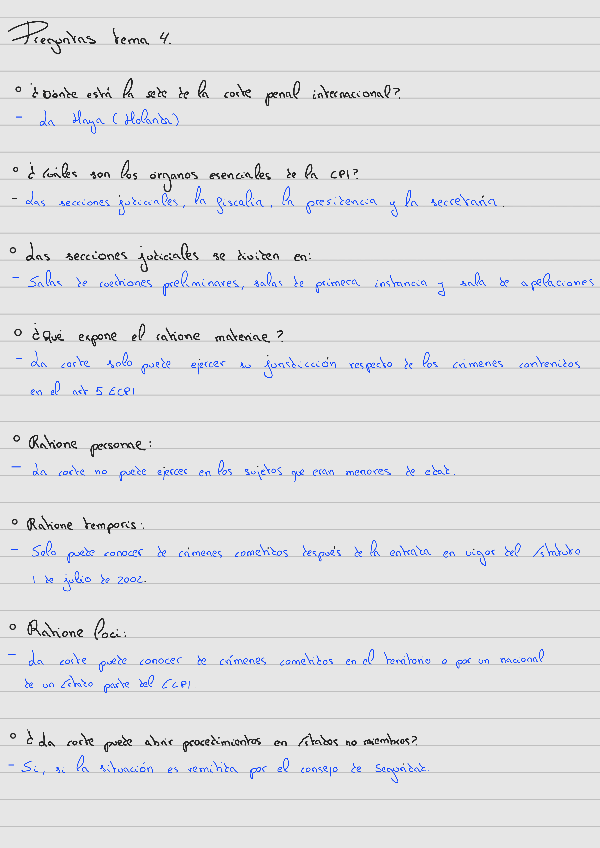 Preguntas tema 4.
° ¿Dónde está la sede de la corte penal internacional?
- La Haya (Holanda)
° ¿Cuáles son los órganos esenciales de la CPI?
- Las secciones judiciales, la fiscalía, la presidencia y la secretaría.
° Las secciones judiciales se dividen en:
- Salas de cuestiones preliminares, salas de primera instancia y sala de apelaciones
° ¿Qué expone el ratione materiae?
- La corte solo puede ejercer su jurisdicción respecto de los crímenes contenidos
en el art 5 ECPI
° Ratione personae:
- La corte no puede ejercer en los sujetos que eran menores de edad.
° Ratione temporis:
- Solo puede conocer de crímenes cometidos después de la entrada en vigor del Estatuto
1 de julio de 2002.
° Ratione loci:
- La corte puede conocer de crímenes cometidos en el territorio o por un nacional
de un Estado parte del ECPI
° ¿La corte puede abrir procedimientos en Estados no miembros?
- Si, si la situación es remitida por el consejo de Seguridad.